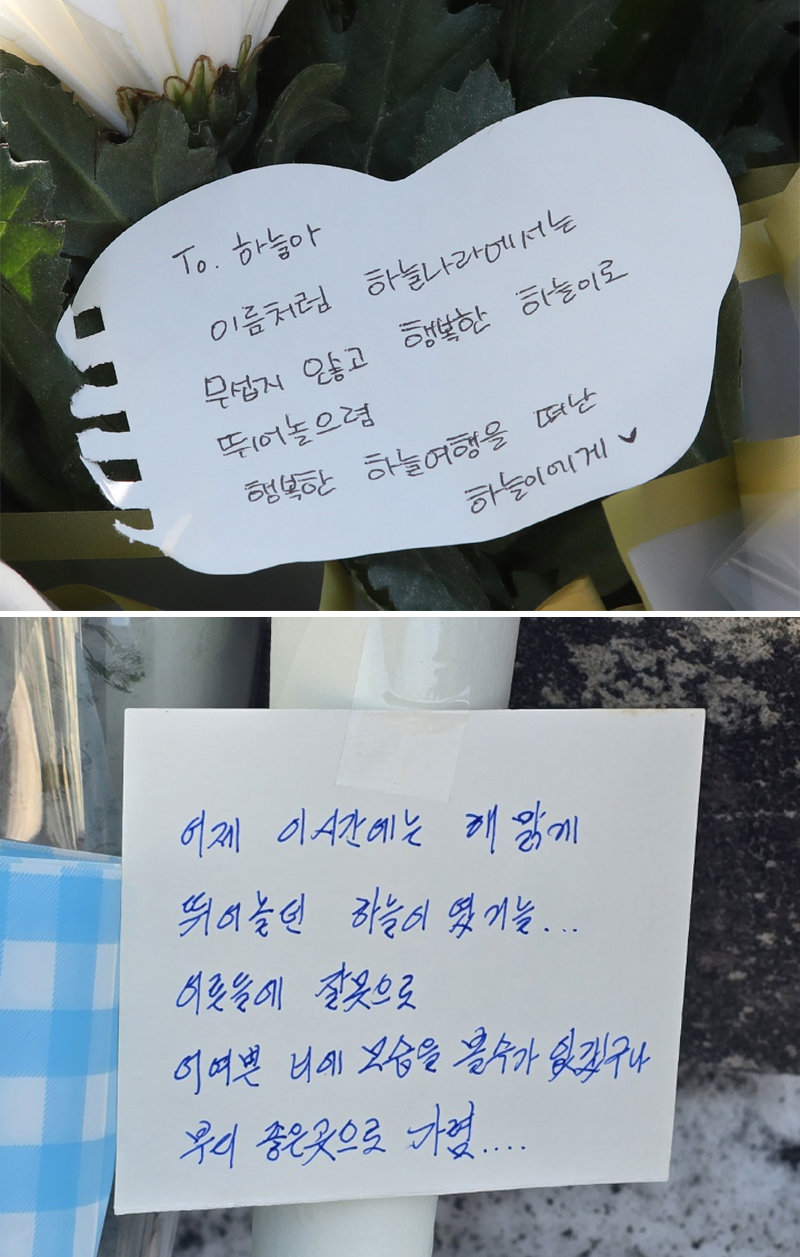 To. 하늘아
이름처럼 하늘나라에서는
무섭지 않고 행복한 하늘이로
뛰어놀으렴
행복한 하늘여행을 떠난
하늘이에게 ♥
어제 이시간에는 해 맑게
뛰어놀던 하늘이 였거늘...
어릇들에 잘못으로
어여쁜 너에 모습을 볼수가 없겠구나
부디 좋은곳으로 가렴....